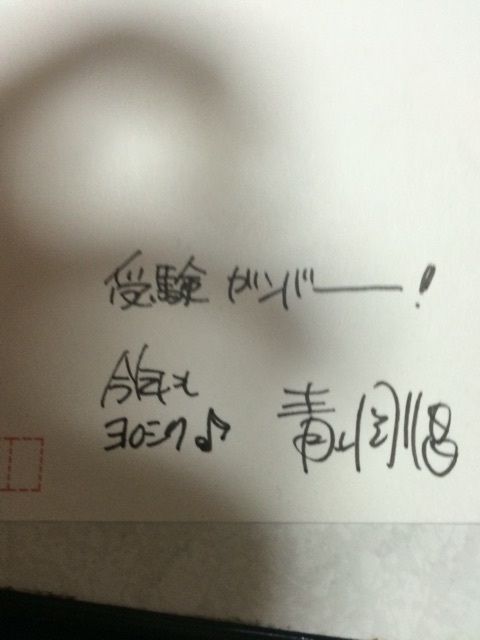 受験 ガンバ——！
今年も
ヨロシク♪ 青山剛昌